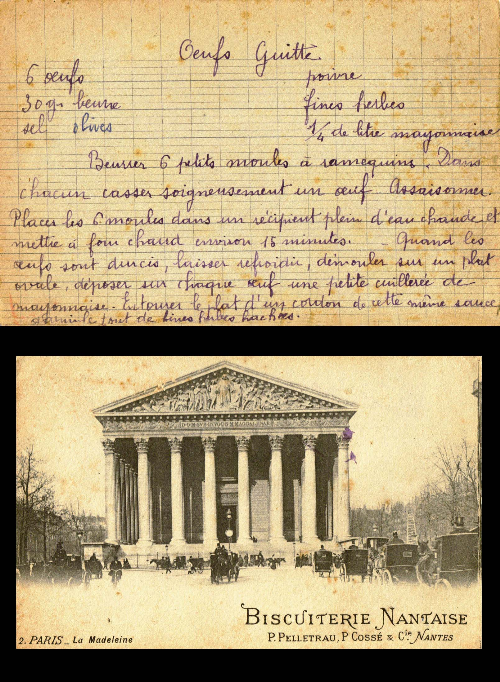 Œufs Guitte
6 œufs poivre
30 gr beurre fines herbes
sel olives 1/4 de litre mayonnaise
Beurrer 6 petits moules à ramequins. Dans
chacun casser soigneusement un œuf. Assaisonner.
Placer les 6 moules dans un récipient plein d'eau chaude et
mettre à four chaud environ 15 minutes. _ Quand les
œufs sont durcis, laisser refroidir, démouler sur un plat
ovale, déposer sur chaque œuf une petite cuillerée de
mayonnaise. Entourer le plat d'un cordon de cette même sauce,
tout de fines herbes hachées.
BISCUITERIE NANTAISE
P. PELLETRAU, P. COSSÉ & Cie NANTES
2. PARIS _ La Madeleine